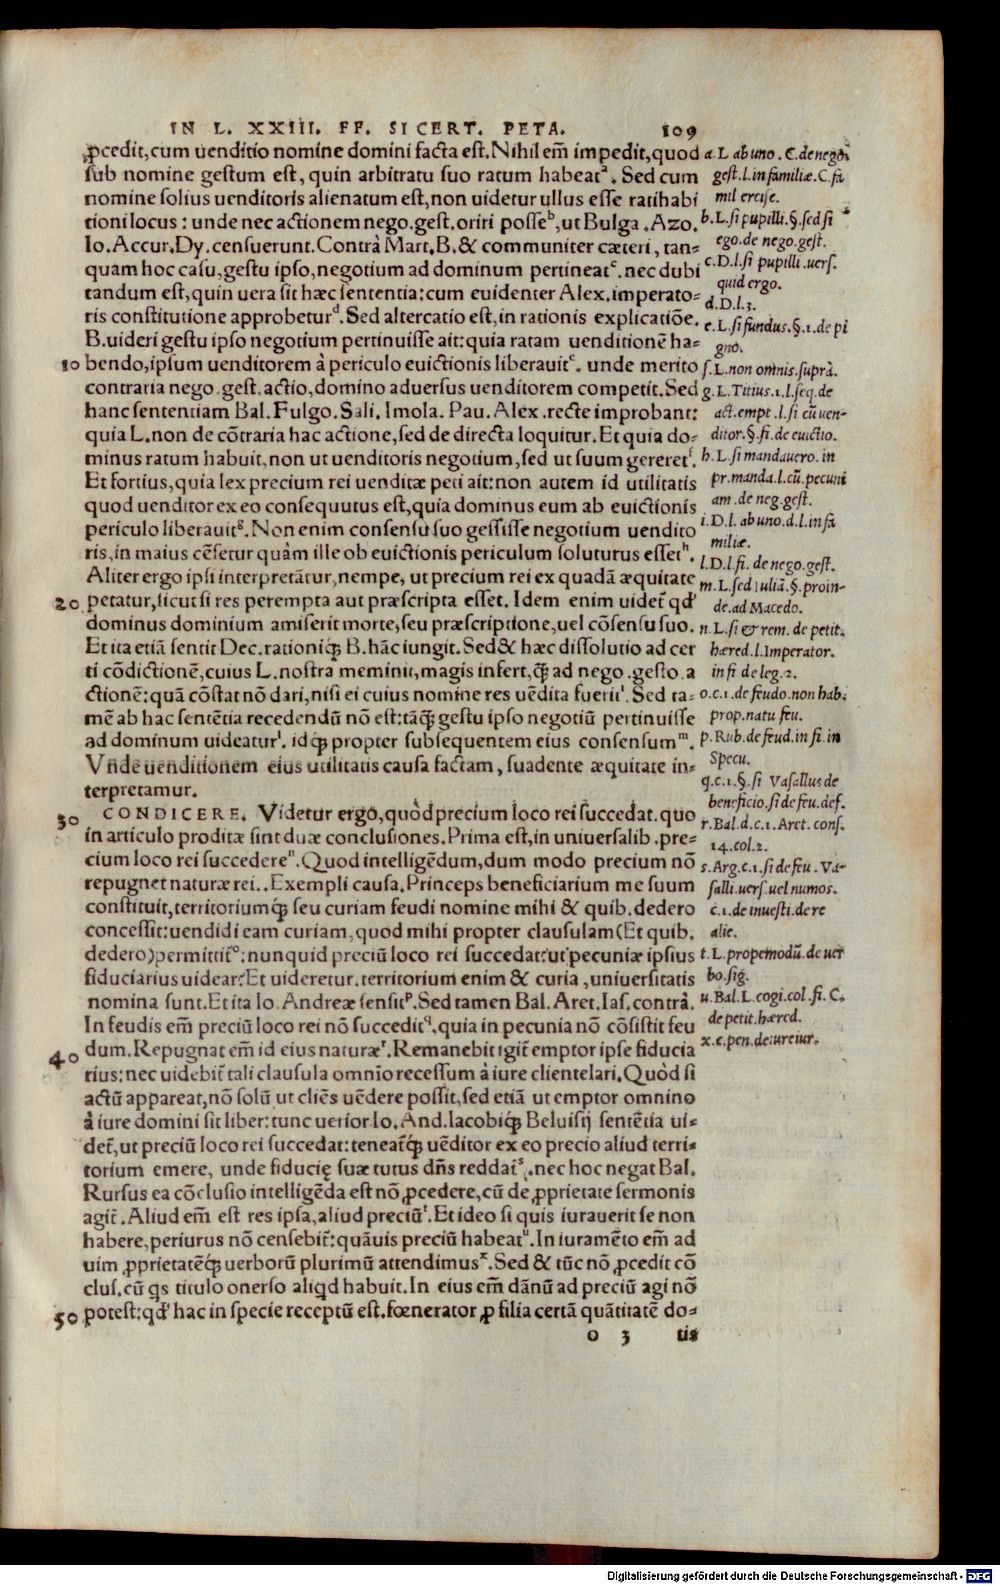 IN L. XXIII. FF. SI CERT. PETA. 109
ꝓcedit, cum uenditio nomine domini facta est. Nihil em̃ impedit, quod
sub nomine gestum est, quin arbitratu suo ratum habeatᵃ. Sed cum
nomine solius uenditoris alienatum est, non uidetur ullus esse ratihabi
tioni locus: unde nec actionem nego. gest. oriri posseᵇ, ut Bulga. Azo.
Io. Accur. Dy. censuerunt. Contrà Mart. B. & communiter cæteri, tan-
quam hoc casu, gestu ipso, negotium ad dominum pertineatᶜ. nec dubi
tandum est, quin uera sit hæc sententia: cum euidenter Alex. imperato-
ris constitutione approbeturᵈ. Sed altercatio est, in rationis explicatiõe.
B. uideri gestu ipso negotium pertinuisse ait: quia ratam uenditionẽ ha-
10 bendo, ipsum uenditorem à periculo euictionis liberauitᵉ. unde merito
contraria nego. gest. actio, domino aduersus uenditorem competit. Sed
hanc sententiam Bal. Fulgo. Sali. Imola. Pau. Alex. recte improbant:
quia L. non de cõtraria hac actione, sed de directa loquitur. Et quia do-
minus ratum habuit, non ut uenditoris negotium, sed ut suum gereretᶠ.
Et fortius, quia lex precium rei uenditæ peti ait: non autem id utilitatis
quod uenditor ex eo consequutus est, quia dominus eum ab euictionis
periculo liberauitᵍ. Non enim consensu suo gessisse negotium uendito
ris, in maius cẽsetur quàm ille ob euictionis periculum soluturus essetʰ.
Aliter ergo ipsi interpretãtur, nempe, ut precium rei ex quadã æquitate
20 petatur, sicut si res perempta aut præscripta esset. Idem enim uidet̃ qđ
dominus dominium amiserit morte, seu præscriptione, uel cõsensu suo.
Et ita etiã sentit Dec. rationiq́; B. hãc iungit. Sed & hæc dissolutio ad cer
ti cõdictionẽ, cuius L. nostra meminit, magis infert, q̃ ad nego. gesto. a
ctionẽ: quã cõstat nõ dari, nisi ei cuius nomine res uẽdita fueritⁱ. Sed ta-
mẽ ab hac sentẽtia recedendũ nõ est: tãq̃ gestu ipso negotiũ pertinuisse
ad dominum uideaturˡ. idq́; propter subsequentem eius consensumᵐ.
Vnde uenditionem eius utilitatis causa factam, suadente æquitate in-
terpretamur.
30 CONDICERE. Videtur ergo, quòd precium loco rei succedat. quo
in articulo proditæ sint duæ conclusiones. Prima est, in uniuersalib. pre-
cium loco rei succedereⁿ. Quod intelligẽdum, dum modo precium nõ
repugnet naturæ rei.. Exempli causa. Princeps beneficiarium me suum
constituit, territoriumq́; seu curiam feudi nomine mihi & quib. dedero
concessit: uendidi eam curiam, quod mihi propter clausulam (Et quib.
dedero) permittit̃ᵒ: nunquid preciũ loco rei succedat: ut pecuniæ ipsius
fiduciarius uidear? Et uideretur. territorium enim & curia, uniuersitatis
nomina sunt. Et ita Io. Andreæ sensitᵖ. Sed tamen Bal. Aret. Ias. contrà.
In feudis em̃ preciũ loco rei nõ succedit𐞥, quia in pecunia nõ cõsistit feu
40 dum. Repugnat em̃ id eius naturæʳ. Remanebit igit̃ emptor ipse fiducia
rius: nec uidebit̃ tali clausula omnĩo recessum à iure clientelari. Quòd si
actũ appareat, nõ solũ ut cliẽs uẽdere possit, sed etiã ut emptor omnino
à iure domini sit liber: tunc uerior Io. And. Iacobiq́; Beluisij sentẽtia ui-
det̃, ut preciũ loco rei succedat: teneat̃q́; uẽditor ex eo precio aliud terri-
torium emere, unde fiducię suæ tutus dñs reddat̃ˢ. nec hoc negat Bal.
Rursus ea cõclusio intelligẽda est nõ ꝓcedere, cũ de ꝓprietate sermonis
agit̃. Aliud em̃ est res ipsa, aliud preciũᵗ. Et ideo si quis iurauerit se non
habere, periurus nõ censebit̃: quãuis preciũ habeatᵘ. In iuramẽto em̃ ad
uim ꝓprietatẽq́; uerborũ plurimũ attendimusˣ. Sed & tũc nõ ꝓcedit cõ
clus. cũ qs titulo onerso aliqd habuit. In eius em̃ dãnũ ad preciũ agi nõ
50 potest: qđ hac in specie receptũ est. fœnerator ꝓ filia certã quãtitatẽ do-
o 3 tis
a. L. ab uno. C. de nego.
gest. l. in familiæ. C. fa
mil ercise.
b. L. si pupilli. §. sed si
ego. de nego. gest.
c. D. l. si pupilli. uers.
quid ergo.
d. D. l. 3.
e. L. si fundus. §. 1. de pi
gno.
f. L. non omnis. suprà.
g. L. Titius. 1. l. seq. de
act. empt. l. si cũ uen-
ditor. §. fi. de euictio.
h. L. si mandauero. in
pr. manda. l. cũ. pecuni
am. de neg. gest.
i. D. l. ab uno. d. l. in fa
miliæ.
l. D. l. fi. de nego. gest.
m. L. sed Iuliã. §. proin-
de. ad Macedo.
n. L. si & rem. de petit.
hæred. l. Imperator.
in fi de leg. 2.
o. c. 1. de feudo. non hab.
prop. natu feu.
p. Rub. de feud. in fi. in
Specu.
q. c. 1. §. si Vasallus de
beneficio. si de feu. def.
r. Bal. d. c. 1. Aret. cons.
14. col. 2.
s. Arg. c. 1. si de feu. Va-
salli. uers. uel numos.
c. 1. de inuesti. de re
alie.
t. L. propemodũ. de uer
bo. sig.
u. Bal. L. cogi. col. fi. C.
de petit. hæred.
x. c. pen. de iureiur.
Digitalisierung gefördert durch die Deutsche Forschungsgemeinschaft - DFG